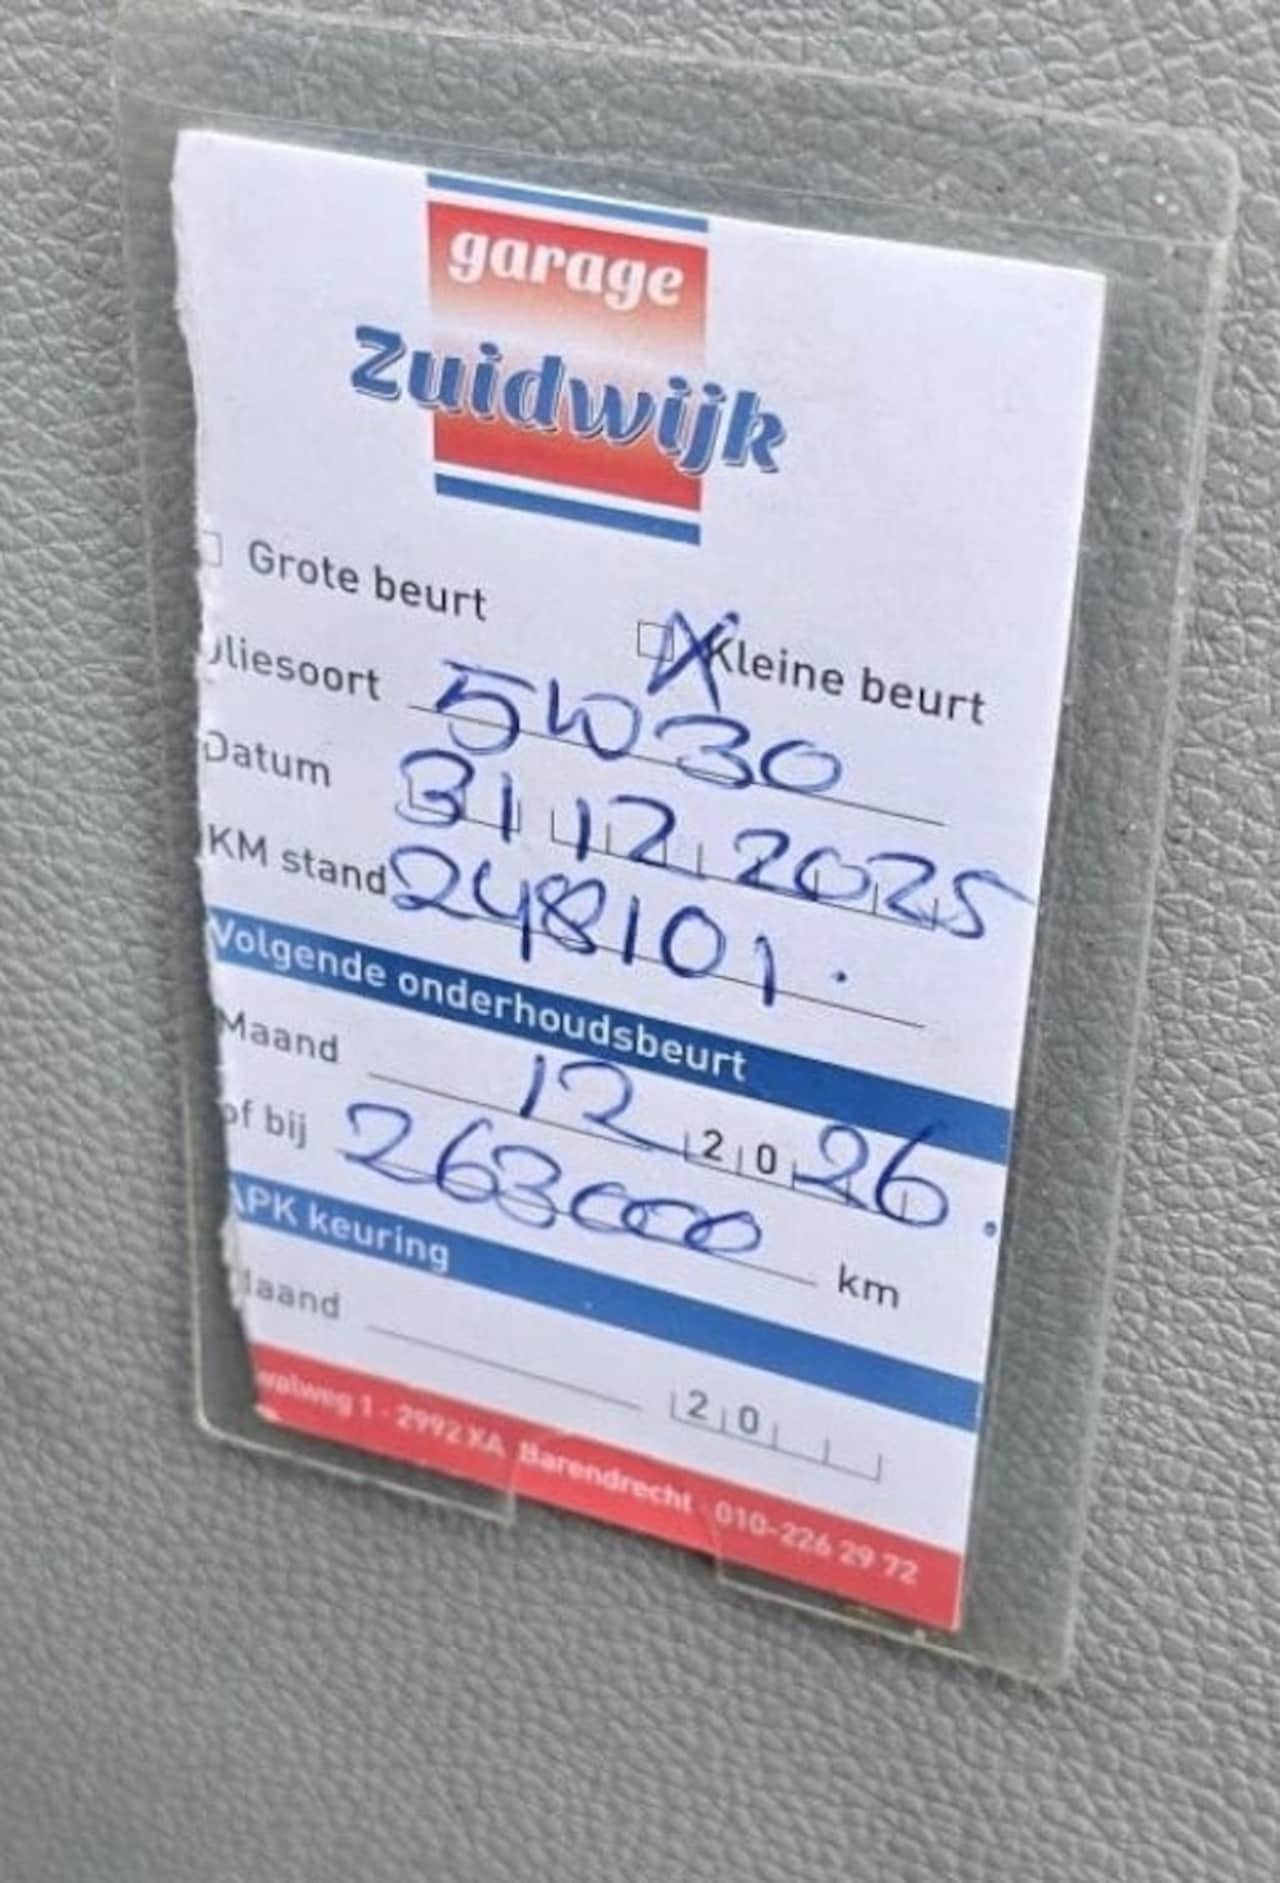 garage
Zuidwijk
Grote beurt Kleine beurt
Oliesoort 5W30
Datum 31 12 2025
KM stand 248101.
Volgende onderhoudsbeurt
Maand 12 2026.
of bij 263000 km
APK keuring
Maand 20
1 - 2992 XA Barendrecht - 010-226 29 72